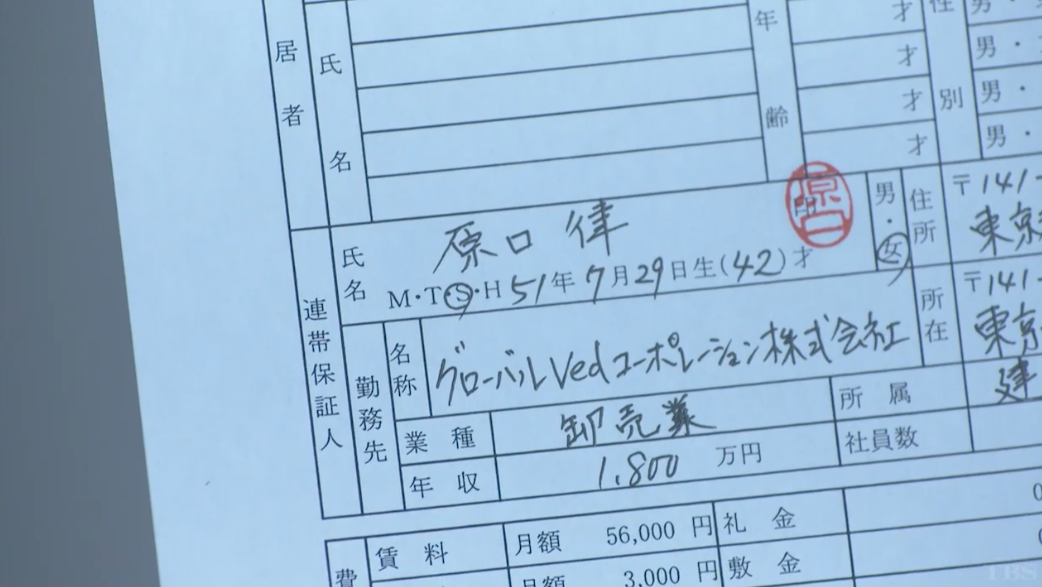 居者
氏名
年齢
性別
才
男・
才
男・
才
男・
才
男・
連帯保証人
氏名
原口 律
印
原口
男・女
住所
〒141-
東京
M・T・S・H 51年 7月 29日生(42)才
勤務先
名称
グローバルVedコーポレーション株式会社
所在
〒141-
東京
業種
卸売業
所属
建
年収
1,800 万円
社員数
費
賃料
月額 56,000 円
礼金
0
月額 3,000 円
敷金
0
TBS